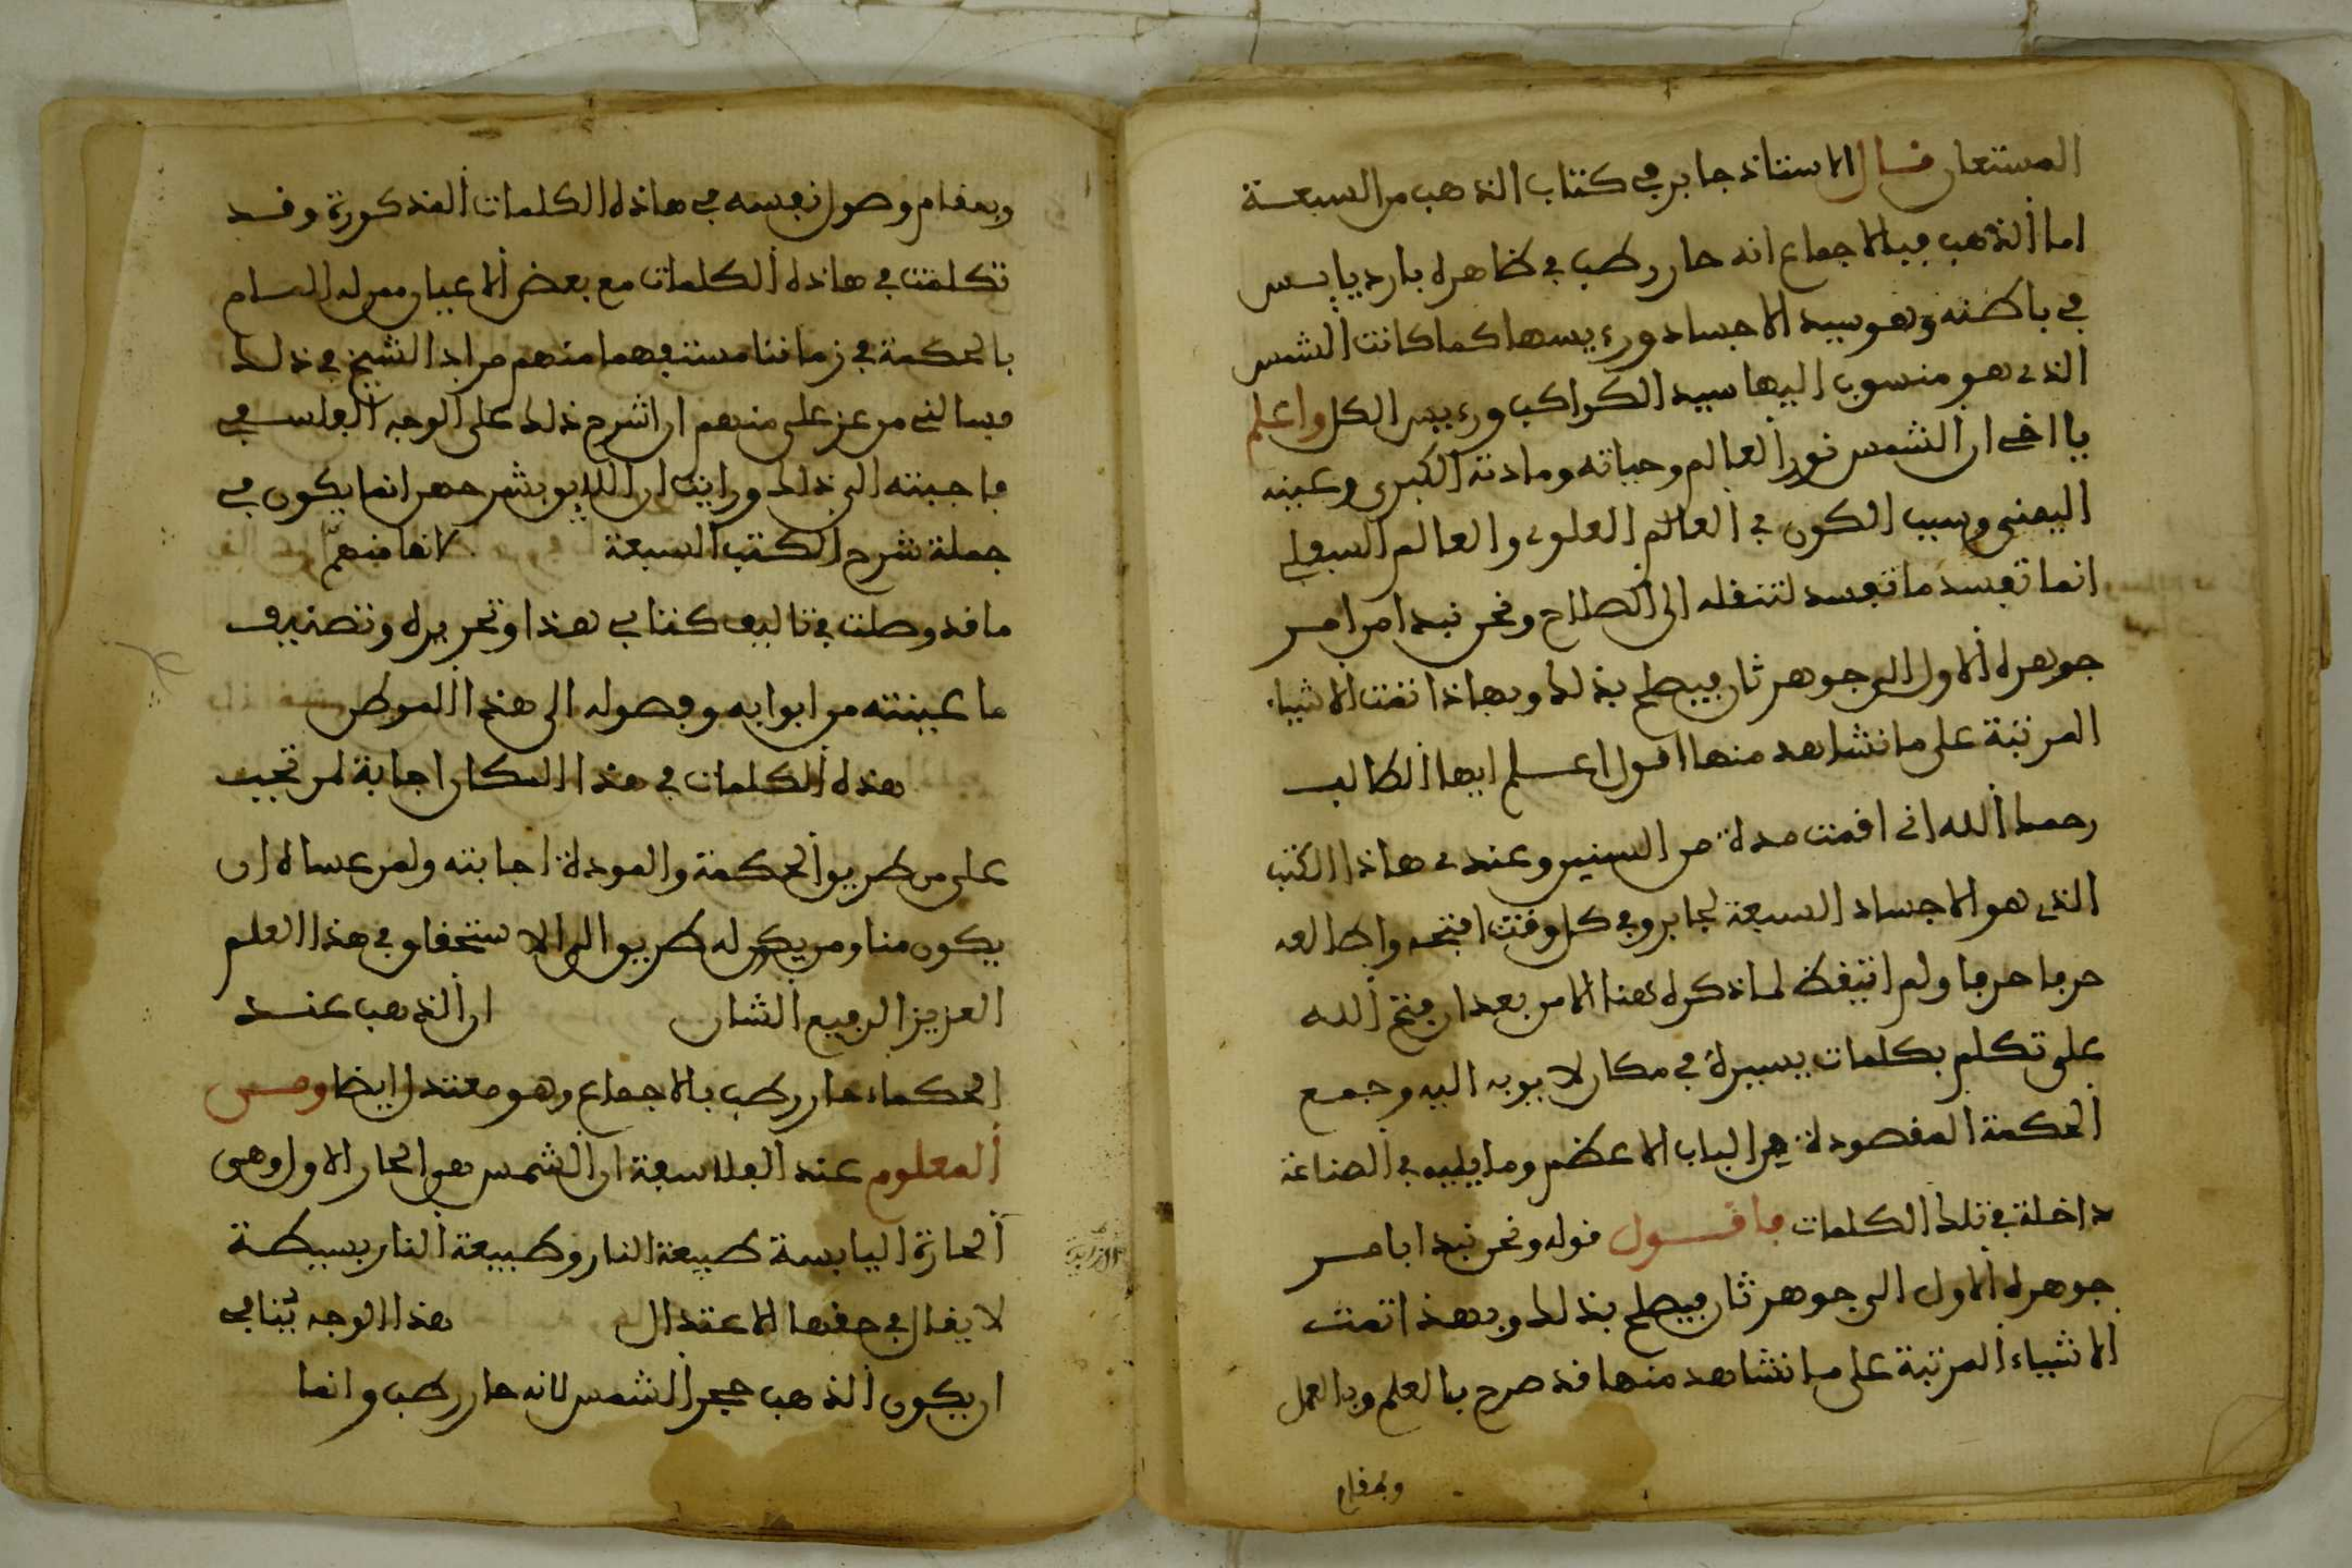 المستعان قال الاستاذ جابر في كتاب الذهب من السبعة
اما الذهب فبالاجماع انه حار رطب في ظاهره بارد يابس
في باطنه وهو سيد الاجساد ورءيسها كما كانت الشمس
الذي هو منسوب اليها سيد الكواكب ورءيس الكل واعلم
يا اخي ان الشمس نور العالم وحياته ومادته الكبرى وعينه
اليمنى وسبب الكون في العالم العلوي والعالم السفلي
انما تفسد ما تفسد لتنقله الى الصلاح ونحن نبدا من امر
جوهره الاول الى جوهر ثان فيصلح بذلك وبهاذا تمت الاشياء
المرتبة على ما نشاهد منها اقول اعلم ايها الطالب
رحمك الله اني اقمت مدة من السنين وعندي هاذا الكتب
الذي هو الاجساد السبعة لجابر وفي كل وقت افتحه واطالعه
حرفا حرفا ولم اتيقظ لما ذكره هذا الامر بعد ان فتح الله
على تكلم بكلمات يسيرة في مكان لا يوبه اليه وجمع
الحكمة المقصودة هي الباب الاعظم وما يليه في الصناعة
داخلة في تلك الكلمات فاقول قوله ونحن نبدا بامر
جوهره الاول الى جوهر ثان فيصلح بذلك وبهذا تمت
الاشياء المرتبة على ما نشاهد منها قد صرح بالعلم وبالعمل
وبمقام
وبمقام وصول نفسه في هاذه الكلمات المذكورة وقد
تكلمت في هاذه الكلمات مع بعض الاعيان ممن له المام
بالحكمة في زماننا مستفهما منهم مراد الشيخ في ذلك
فسالني من عز علي منهم ان اشرح ذلك على الوجه الفلسفي
فاجبته الى ذلك ورايت ان اللايق بشرحهر انما يكون في
جملة شرح الكتب السبعة لانها منهم
ما قد وصلت في تاليف كتابي هذا وتحريره وتصنيف
ما عينته من ابوابه وفصوله الى هذا الموطن
هذه الكلمات في هذا المكان اجابة لمن تجب
على من طريق الحكمة والمودة اجابته ولمن عساه ان
يكون منا ومن يكون له طريق الى الاستحقاق في هذا العلم
العزيز الرفيع الشان ان الذهب عند
الحكماء حار رطب بالاجماع وهو معتدل ايضا ومن
المعلوم عند الفلاسفة ان الشمس هي الحار الاول وهي
الحارة اليابسة طبيعة النار وطبيعة النار بسيطة
لا يقال في حقها الاعتدال هذا الوجه ينافي
ان يكون الذهب حجر الشمس لانه حار رطب وانما